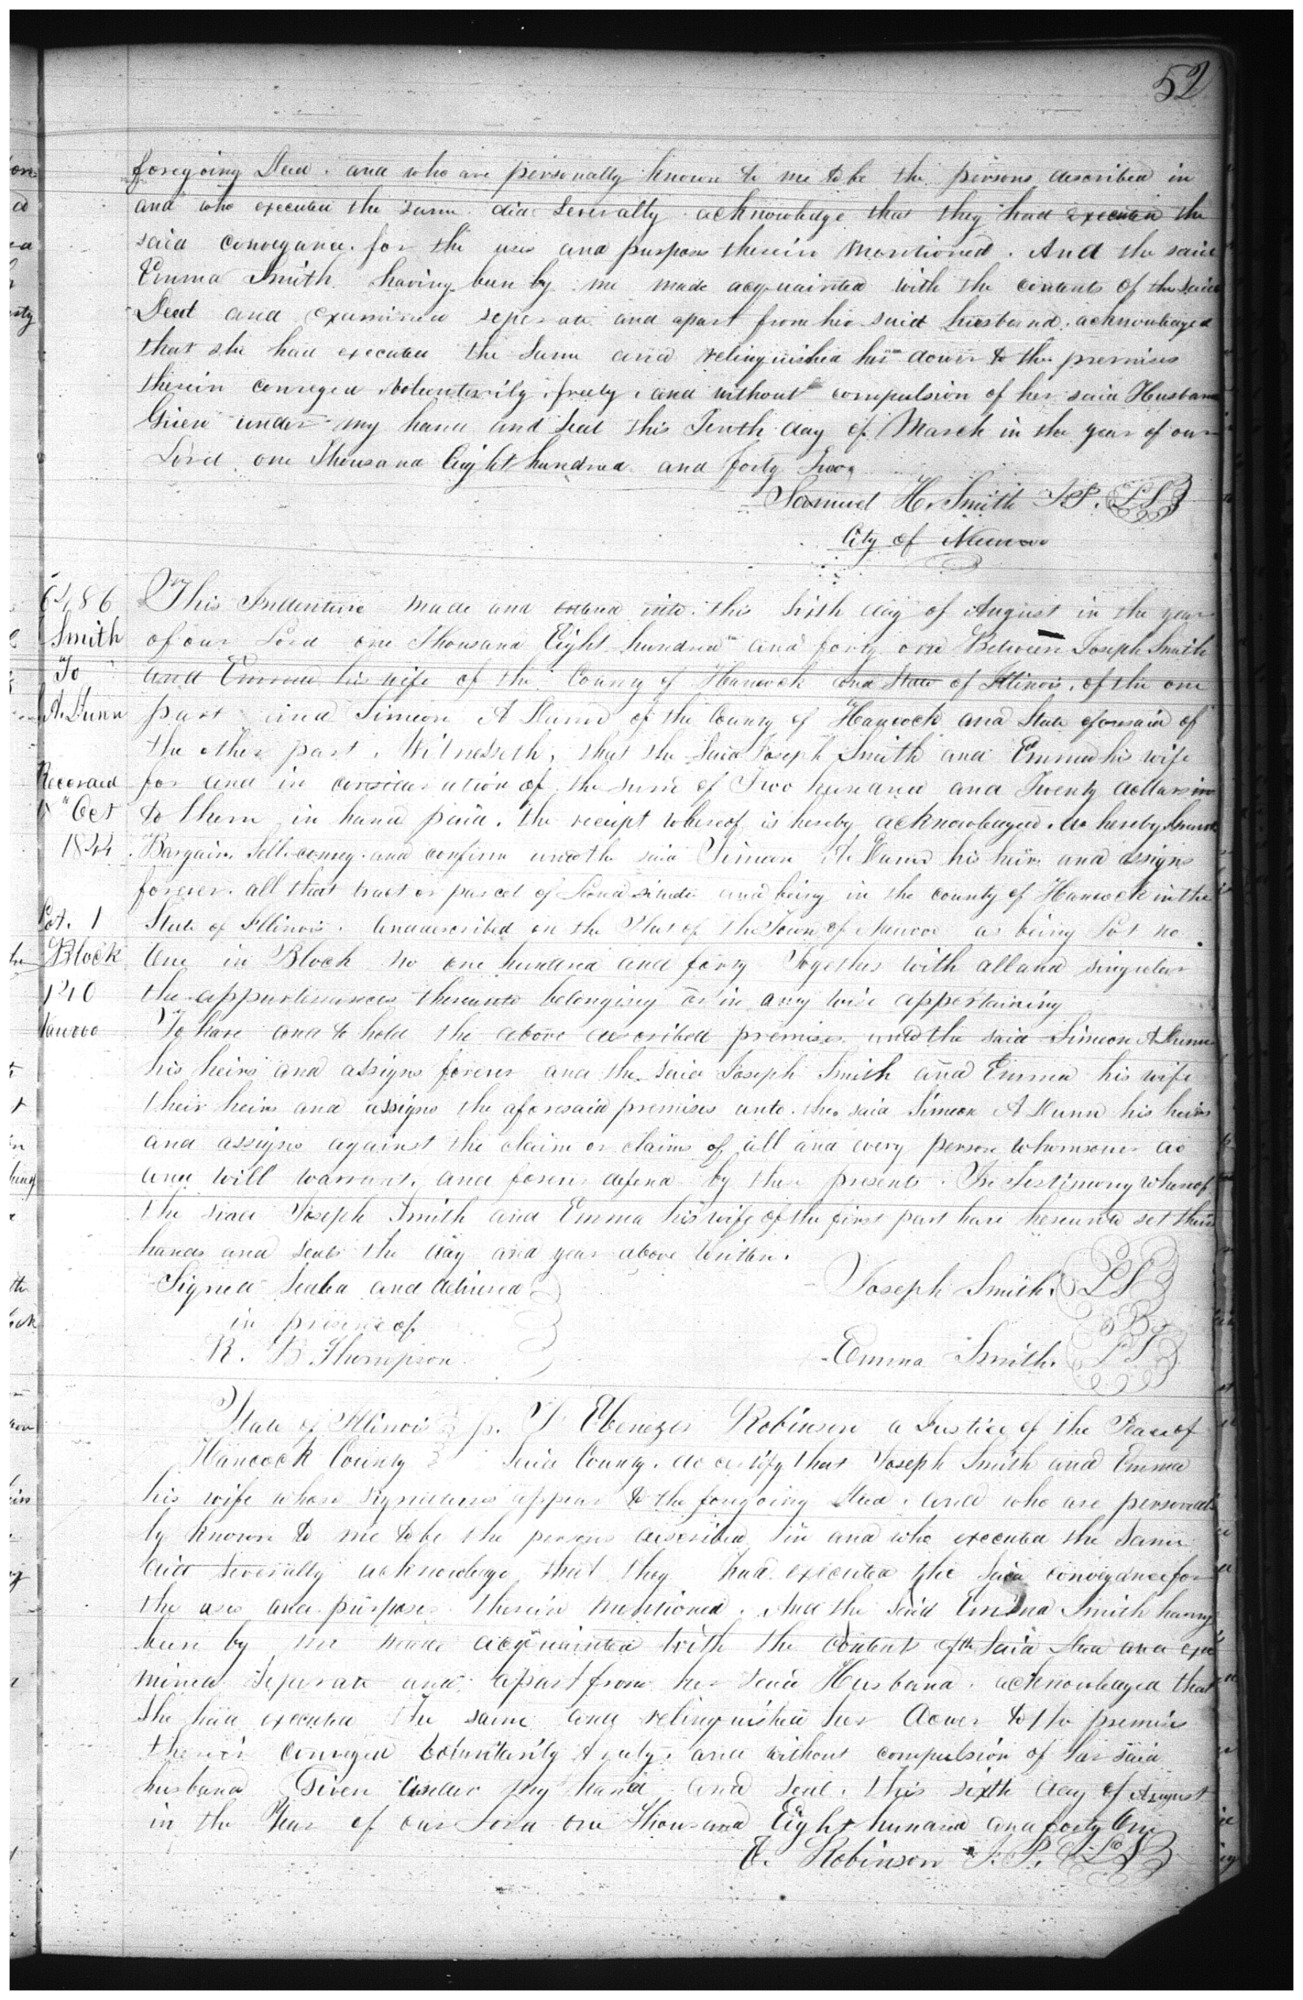 52
foregoing Deed. and who are personally known to me to be the persons described in
and who executed the same did severally acknowledge that they had executed the
said conveyance for the uses and purposes therein mentioned. And the said
Emma Smith having been by me made acquainted with the contents of the said
Deed and examined seperate and apart from her said husband. acknowledged
that she had executed the same and relinquished her dower to the premises
therein conveyed voluntarily, freely, and without compulsion of her said Husband
Given under my hand and seal this Tenth day of March in the year of our
Lord one Thousand Eight hundred and forty Two.
Samuel H. Smith J.P. LS
City of Nauvoo
Smith
To
A. Dunn
Recorded
Oct
Lot. 1
Block
140
Nauvoo
This Indenture made and entered into this sixth day of August in the year
of our Lord one Thousand Eight hundred and forty one Between Joseph Smith
and Emma his wife of the County of Hancock and State of Illinois, of the one
part and Simeon A Dunn of the County of Hancock and State aforesaid of
the other part. Witnesseth, that the said Joseph Smith and Emma his wife
for and in consideration of the sum of Two hundred and Twenty dollars
to them in hand paid. the receipt whereof is hereby acknowledged. do hereby Grant
Bargain, Sell convey and confirm unto the said Simeon A. Dunn his heirs and assigns
forever. all that tract or parcel of Land situate and being in the county of Hancock in the
State of Illinois. and described on the Plat of The Town of Nauvoo as being Lot no
One in Block No one hundred and forty Together with all and singular
the appurtenances thereunto belonging or in any wise appertaining
To have and to hold the above described premises unto the said Simeon A Dunn
his heirs and assigns forever and the said Joseph Smith and Emma his wife
their heirs and assigns the aforesaid premises unto the said Simeon A Dunn his heirs
and assigns against the claim or claims of all and every person whomsoever do
and will warrant, and forever defend by these presents. In Testimony whereof
the said Joseph Smith and Emma his wife of the first part have hereunto set their
hands and seals the day and year above written.
Signed Sealed and delivered
in presence of
R. B Thompson
Joseph Smith. LS
Emma Smith. LS
State of Illinois I Ebenezer Robinson a Justice of the Peace of
Hancock County said County. do certify that Joseph Smith and Emma
his wife whose signatures appear to the foregoing Deed. and who are personal
ly known to me to be the persons described in and who executed the same
did severally acknowledge that they had executed the said conveyance for
the uses and purposes therein mentioned. And the said Emma Smith having
been by me made acquainted with the contents of the said Deed and exa
mined seperate and apart from her said Husband. acknowledged that
She had executed the same and relinquished her dower to the premises
therein conveyed voluntarily & freely. and without compulsion of her said
husband Given under my hand and seal. this sixth day of August
in the Year of our Lord one Thousand Eight hundred and forty One
E. Robinson J. P. LS